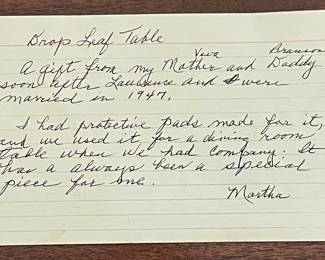 Drop Leaf Table
Veva Branson
A gift from my Mother and Daddy
soon after Lawrence and I were
married in 1947.
I had protective pads made for it,
and we used it for a dining room
table when we had company. It
has a always been a special
piece for me.
Martha